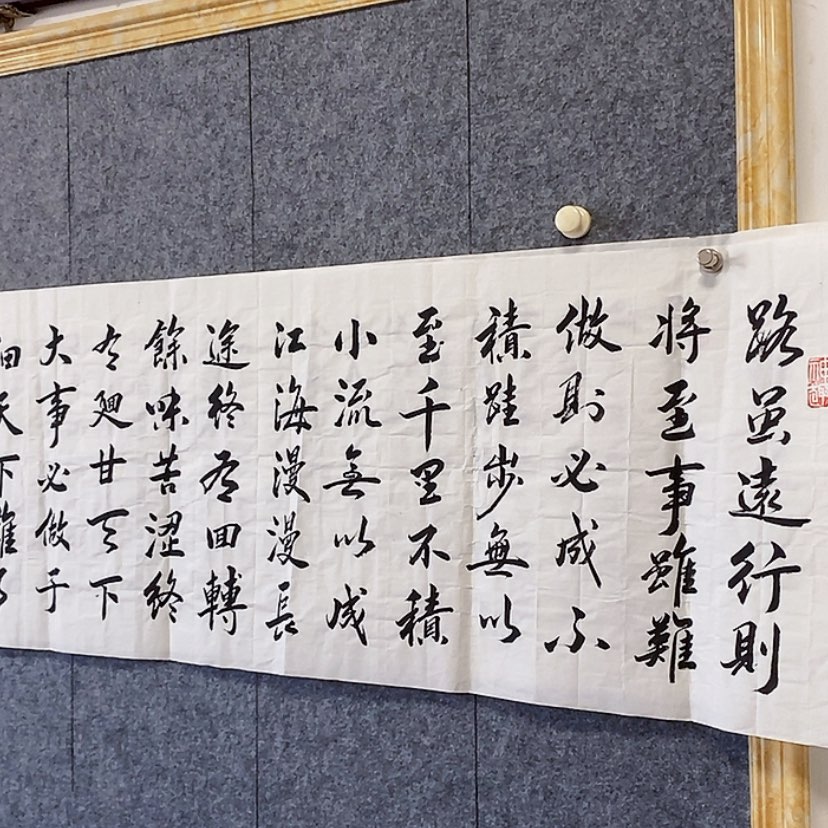 路虽遠行則
将至事雖難
做則必成不
積跬步無以
至千里不積
小流無以成
江海漫漫長
途終有回轉
餘味苦澀終
有廻甘天下
大事必做于
細天下難